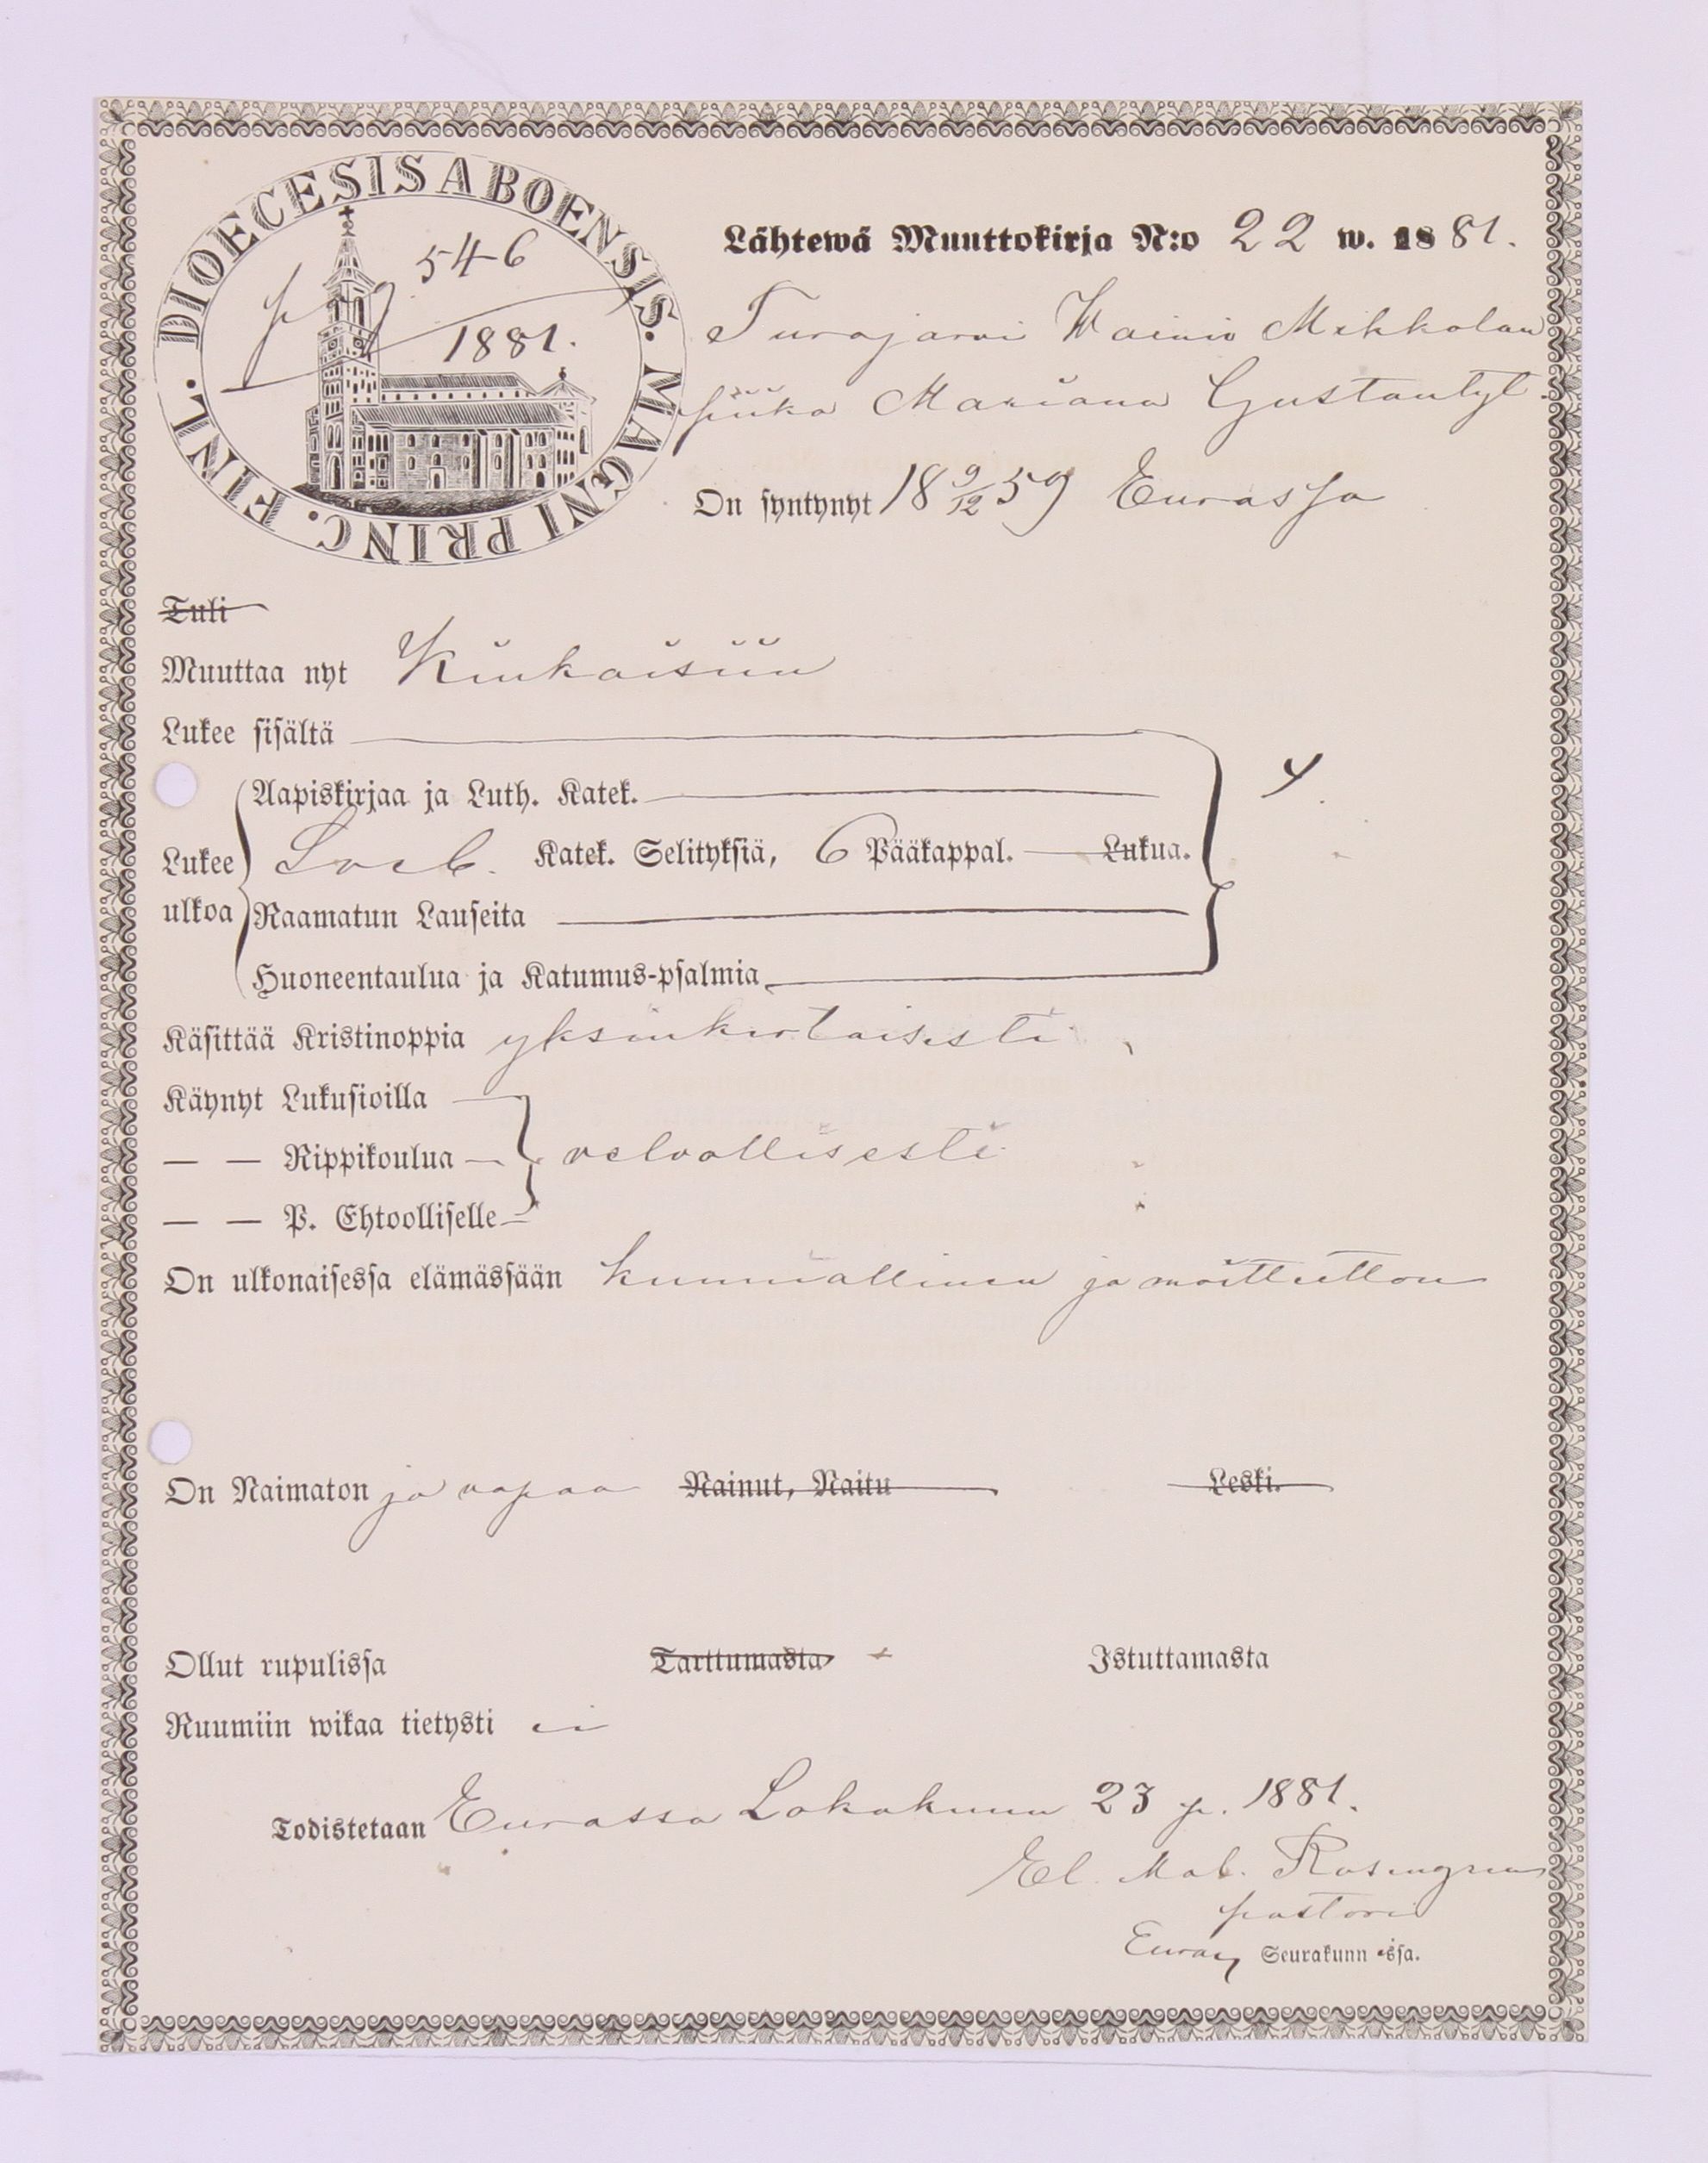 DIOECESIS ABOENSIS. MAGNI PRINC. FINL.
546
1881.
Lähtewä Muuttokirja N:o 22 w. 1881.
Turajarvi Wainio Mikkolan
piika Mariana Gustantyt.
On syntynyt 18 9/12 59 Eurassa
Tuli
Muuttaa nyt Kiukaisiin
Lukee sisältä
Aapiskirjaa ja Luth. Katek.
Lukee ulkoa
Katek. Selityksiä, 6 Pääkappal. Lukua.
Raamatun Lauseita
Huoneentaulua ja Katumus-psalmia
Käsittää Kristinoppia yksinkertaisesti
Käynyt Lukusioilla
— — Rippikoulua velvollisesti
— — P. Ehtoolliselle
On ulkonaisessa elämässään kunniallinen ja moitteetton
On Naimaton ja vapaa Nainut, Naitu Leski.
Ollut rupulissa Tarttumasta Istuttamasta
Ruumiin wikaa tietysti ei
Todistetaan Eurassa Lokakuun 23 p. 1881.
Rosengren
pastori
Euran Seurakunn essa.